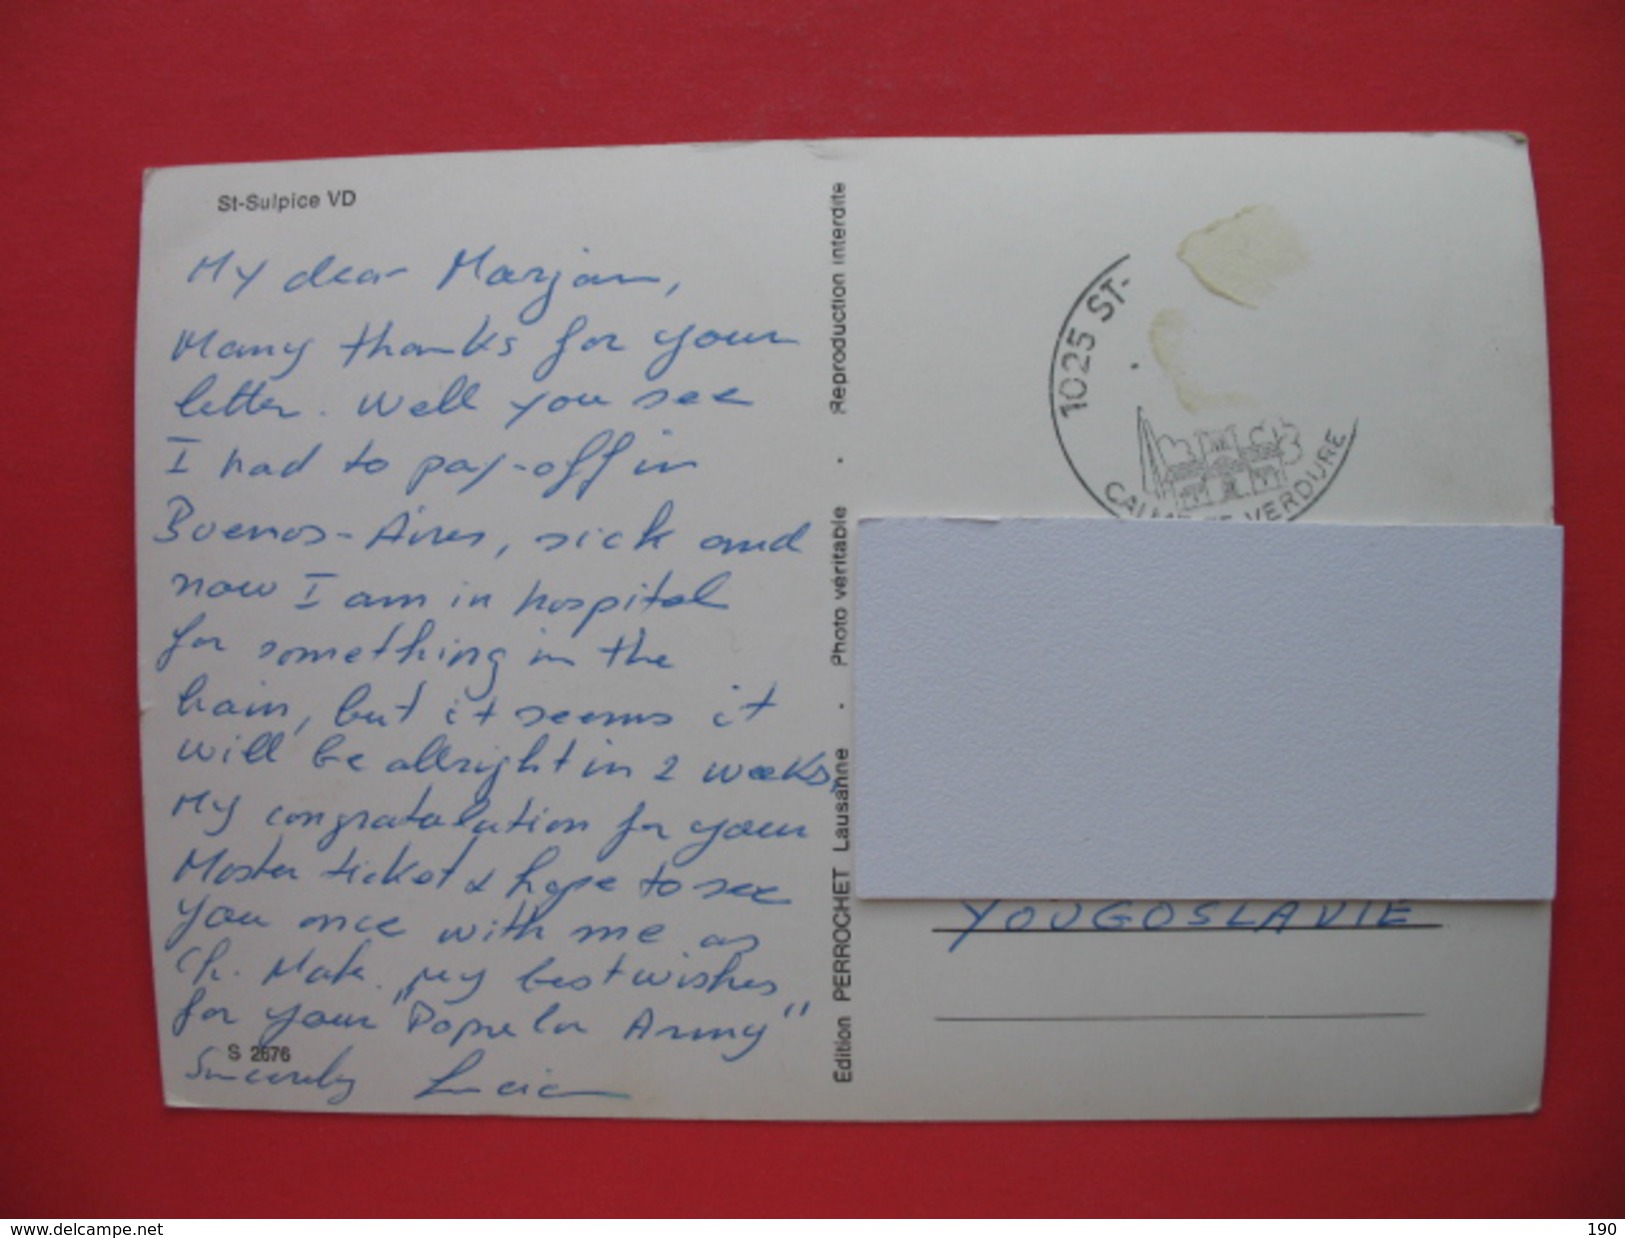 St-Sulpice VD
My dear Marjan,
Many thanks for your
letter. Well you see
I had to pay-off in
Buenos-Aires, sick and
now I am in hospital
for something in the
brain, but it seems it
will be allright in 2 weeks,
My congratulation for your
Master ticket & hope to see
you once with me as
Ch. Mate. My best wishes
for your "Popular Army"
S 2676
Sincerely
Edition PERROCHET Lausanne · Photo véritable · Reproduction interdite
1025 ST-
VERDURE
YOUGOSLAVIE
www.delcampe.net
190